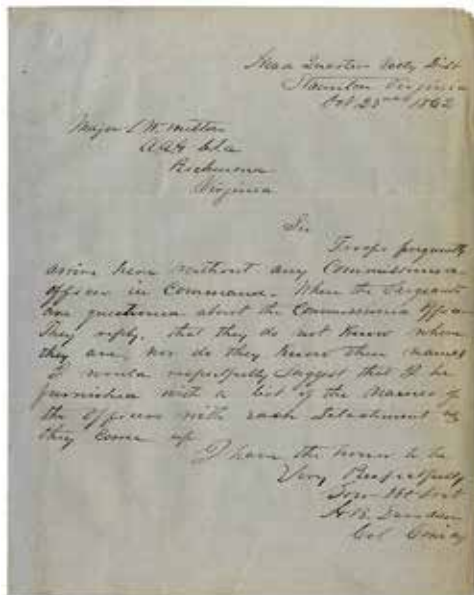 Head Quarters Valley Dist
Staunton Virginia
Oct 23nd 1862
Major
Richmond
Virginia
Sir
Troops frequently
arrive here without any Commissioned
officer in Command. When the Sergeants
are questioned about the Commissioned officers
they reply, that they do not know where
they are, nor do they know their names
I would respectfully suggest that I be
furnished with a list of the names of
the officers with each detachment as
they come up
I have the honor to be
Very Respectfully
Your Obt Svt
Davidson
Col Comdg